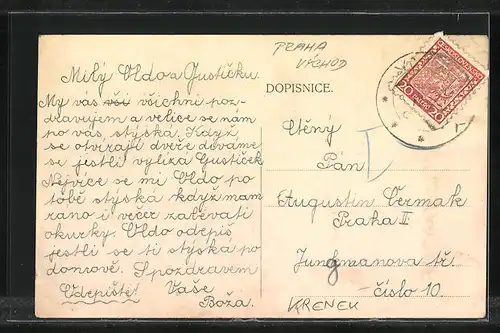 PRAHA
VÝCHOD
DOPISNICE.
Milý Oldo a Gustičku.
My vás vši všichni poz-
dravujem a velice se nám
po vás, stýská. Když
se otvírají dveře díváme
se jestli vylíza Gustíček
Nejvíce se mi Oldo po
tobě stýská když mam
rano i večer zalévati
okurky. Oldo odepiš
jestli se ti stýská po
domově. S pozdravem
Odepište! Vaše
Boža.
ČESKOSLOVENSKO
20 20
Ctěný
Pán
Augustin Čermak
Praha II
Jungmanova tři.
číslo 10.
KRENEK